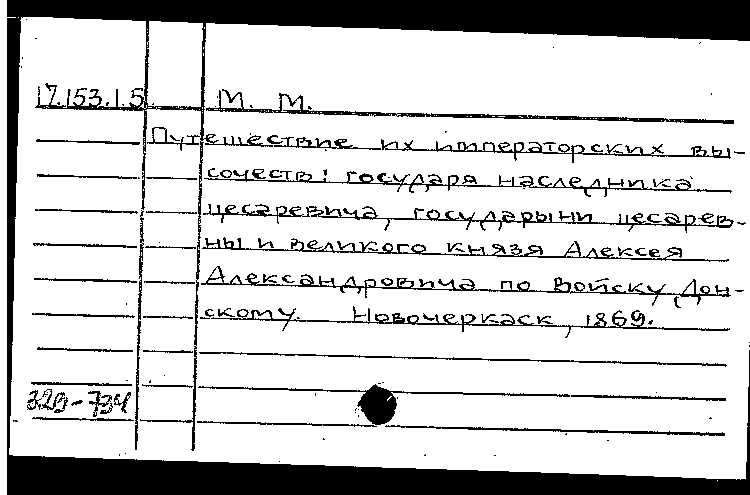 17.153.1.5 М. М.
Путешествие их императорских вы-
сочеств: государя наследника
цесаревича, государыни цесарев-
ны и великого князя Алексея
Александровича по Войску Дон-
скому. Новочеркаск, 1869.
329-734